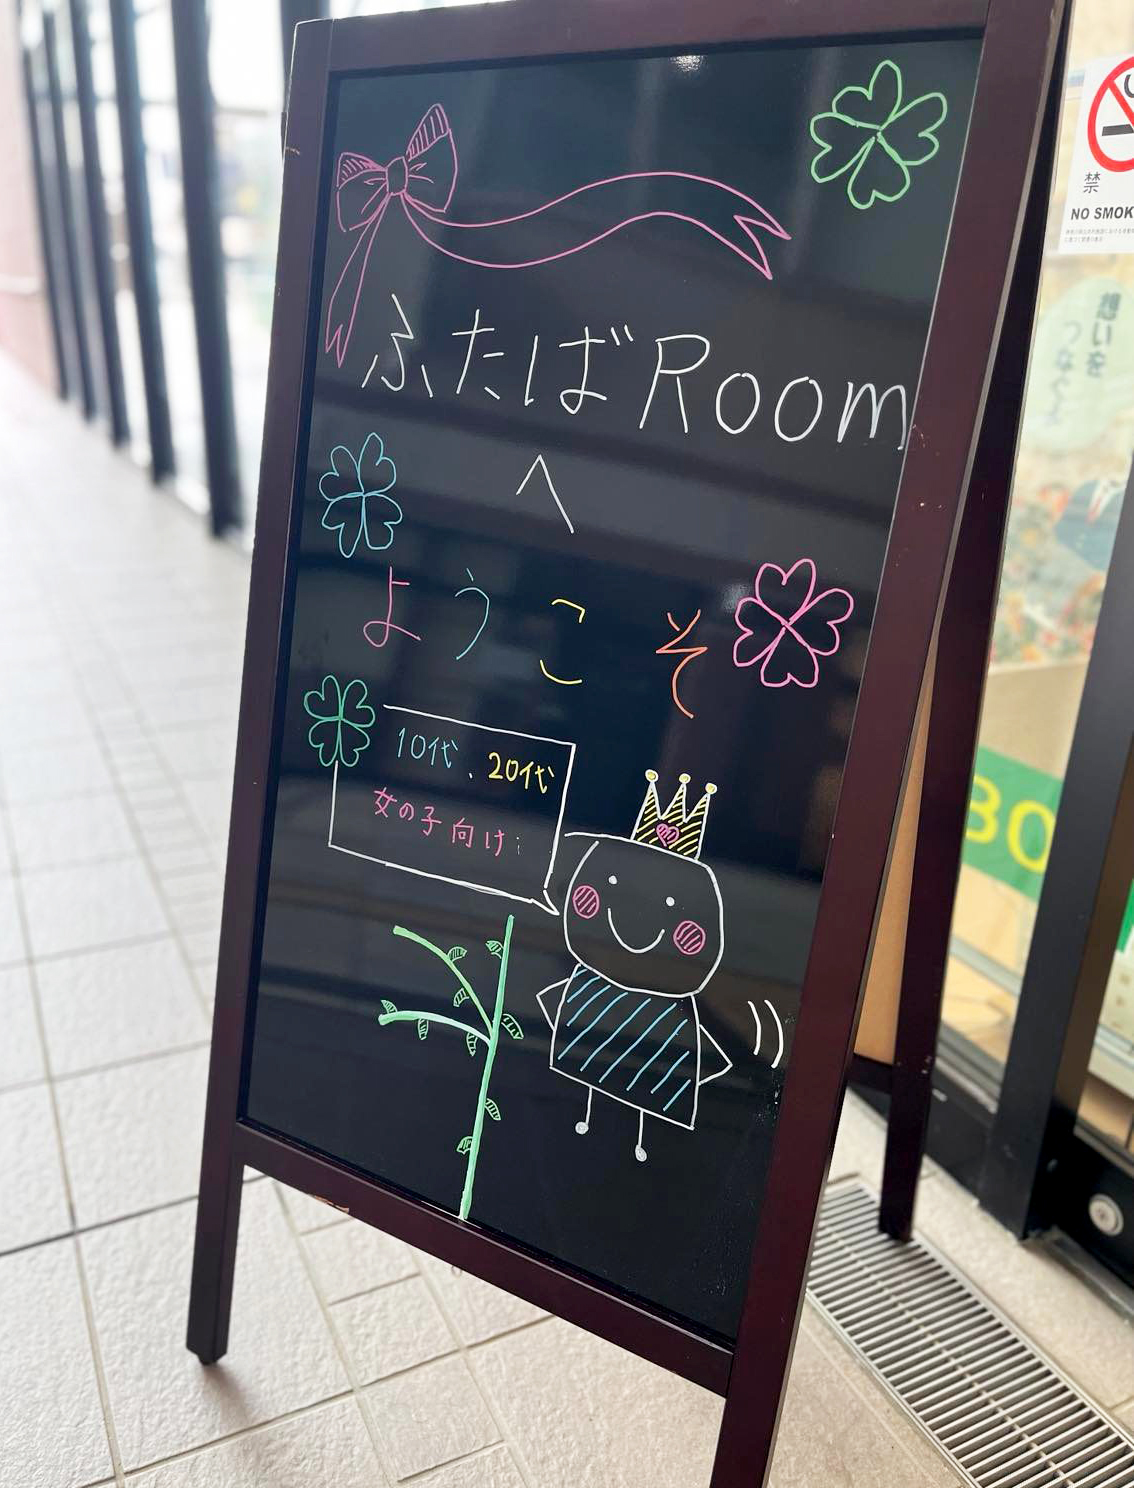 ふたばRoom
へ
ようこそ
10代、20代
女の子向け
禁
NO SMOK
想いを
つなぐ
BO